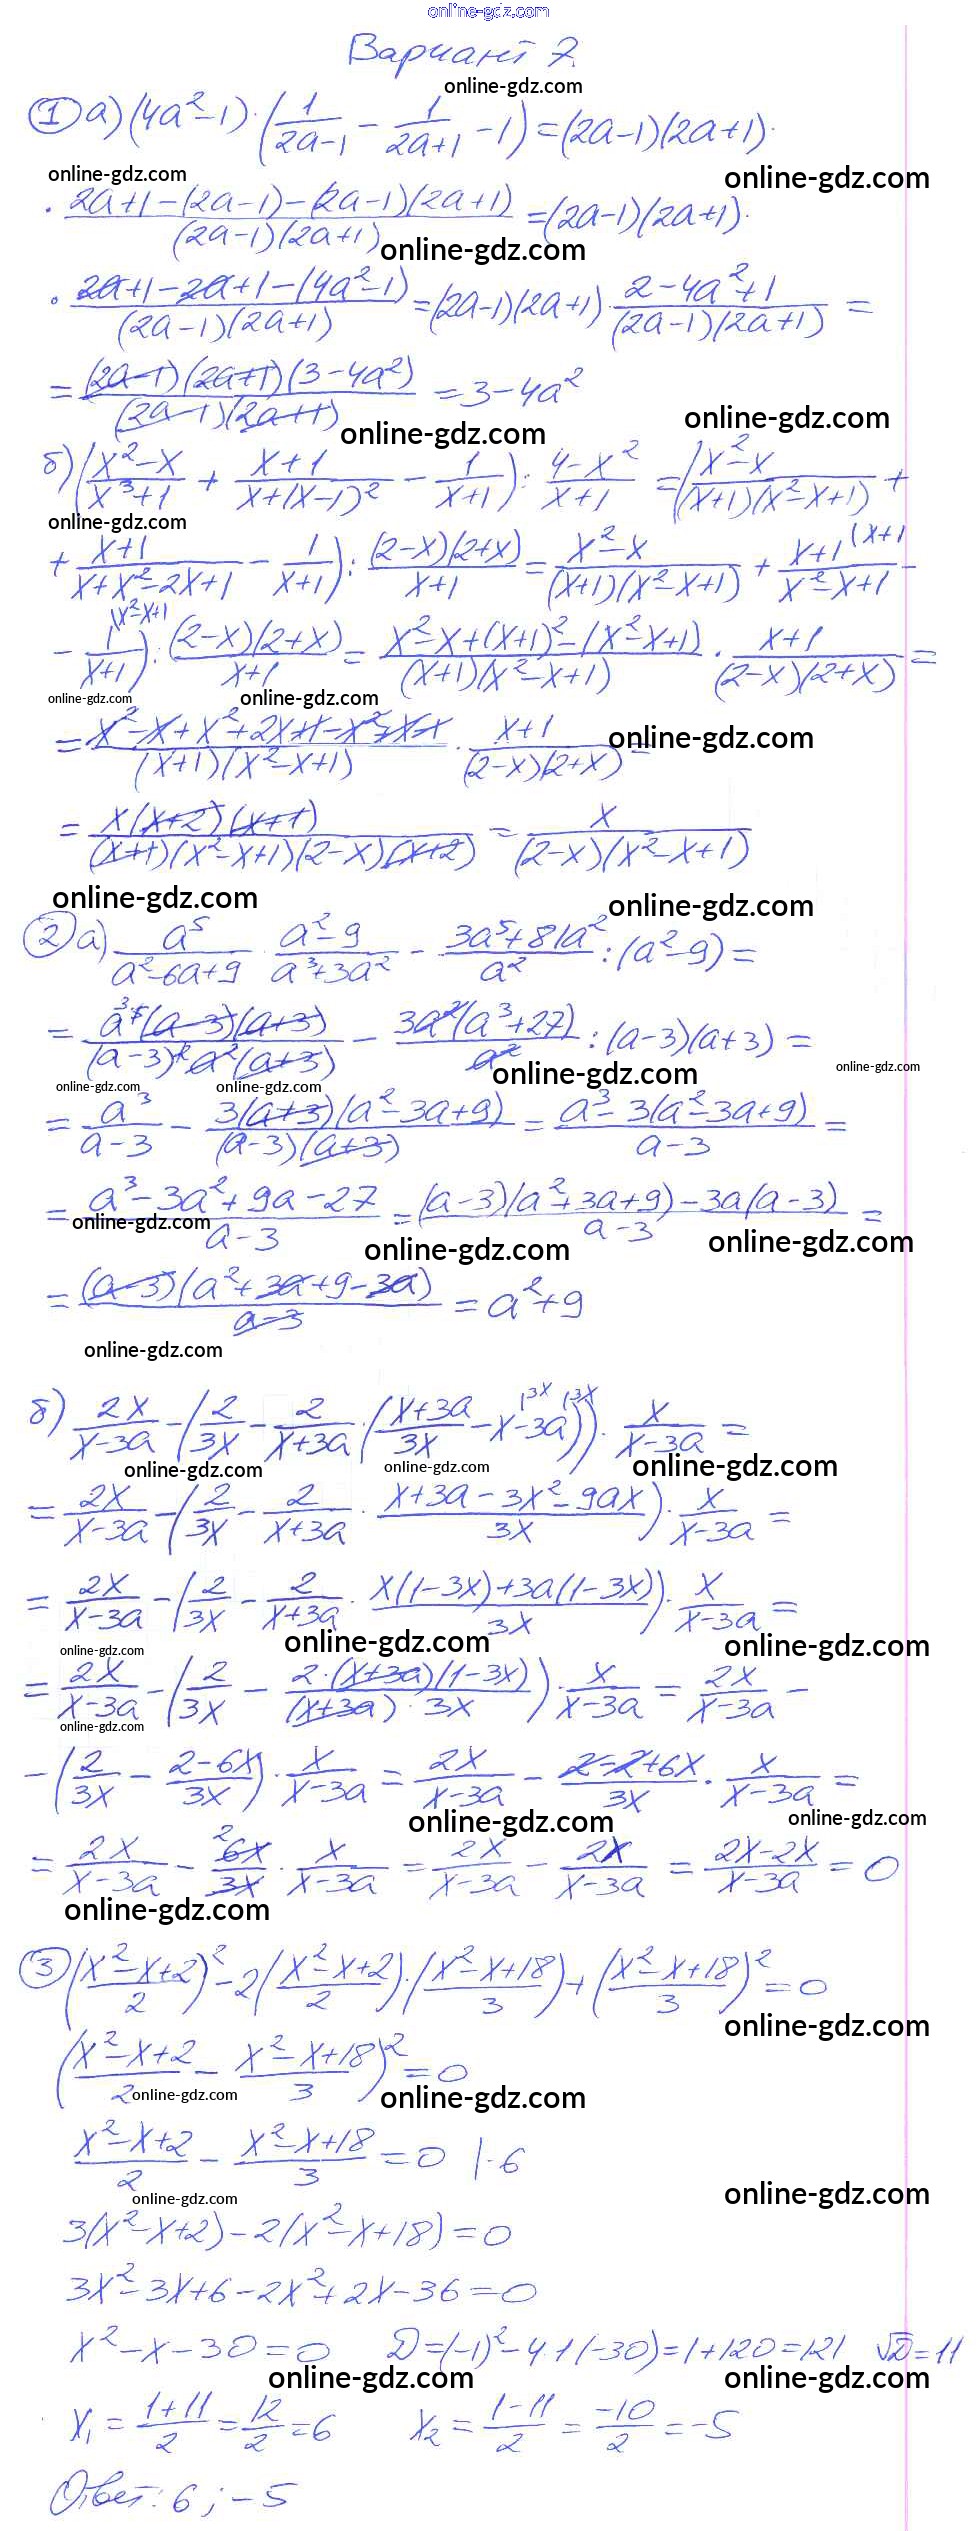 online-gdz.com
Вариант 7.
online-gdz.com
① а) (4a²-1)·(1/(2a-1) - 1/(2a+1) - 1) = (2a-1)(2a+1)·
online-gdz.com online-gdz.com
· (2a+1-(2a-1)-(2a-1)(2a+1))/((2a-1)(2a+1)) = (2a-1)(2a+1)·
online-gdz.com
· (2a+1-2a+1-(4a²-1))/((2a-1)(2a+1)) = (2a-1)(2a+1)·(2-4a²+1)/((2a-1)(2a+1)) =
= ((2a-1)(2a+1)(3-4a²))/((2a-1)(2a+1)) = 3-4a²
online-gdz.com online-gdz.com
б) ((x²-x)/(x³+1) + (x+1)/(x+(x-1)²) - 1/(x+1)) : (4-x²)/(x+1) = ((x²-x)/((x+1)(x²-x+1)) +
online-gdz.com
+ (x+1)/(x+x²-2x+1) - 1/(x+1)) : ((2-x)(2+x))/(x+1) = (x²-x)/((x+1)(x²-x+1)) + (x+1)/(x²-x+1) (x+1 -
- 1/(x+1) (x²-x+1) : ((2-x)(2+x))/(x+1) = (x²-x+(x+1)²-(x²-x+1))/((x+1)(x²-x+1)) · (x+1)/((2-x)(2+x)) =
online-gdz.com online-gdz.com
= (x²-x+x²+2x+1-x²+x-1)/((x+1)(x²-x+1)) · (x+1)/((2-x)(2+x)) =
online-gdz.com
= (x(x+2)(x+1))/((x+1)(x²-x+1)(2-x)(x+2)) = x/((2-x)(x²-x+1))
online-gdz.com online-gdz.com
② а) a⁵/(a²-6a+9) · (a²-9)/(a³+3a²) - (3a⁵+81a²)/a² : (a²-9) =
= (a⁵ ³(a-3)(a+3))/((a-3)² a²(a+3)) - (3a²(a³+27))/a² : (a-3)(a+3) =
online-gdz.com online-gdz.com
online-gdz.com online-gdz.com
= a³/(a-3) - (3(a+3)(a²-3a+9))/((a-3)(a+3)) = (a³-3(a²-3a+9))/(a-3) =
= (a³-3a²+9a-27)/(a-3) = ((a-3)(a²+3a+9)-3a(a-3))/(a-3) =
online-gdz.com online-gdz.com online-gdz.com
= ((a-3)(a²+3a+9-3a))/(a-3) = a²+9
online-gdz.com
б) 2x/(x-3a) - (2/3x - 2/(x+3a) · ((x+3a)/3x - x (3x - 3a (3x)) · x/(x-3a) =
online-gdz.com online-gdz.com online-gdz.com
= 2x/(x-3a) - (2/3x - 2/(x+3a) · (x+3a-3x²-9ax)/3x) · x/(x-3a) =
= 2x/(x-3a) - (2/3x - 2/(x+3a) · (x(1-3x)+3a(1-3x))/3x) · x/(x-3a) =
online-gdz.com online-gdz.com online-gdz.com
= 2x/(x-3a) - (2/3x - (2·(x+3a)(1-3x))/((x+3a)·3x)) · x/(x-3a) = 2x/(x-3a) -
online-gdz.com
- (2/3x - (2-6x)/3x) · x/(x-3a) = 2x/(x-3a) - (2-2+6x)/3x · x/(x-3a) =
online-gdz.com online-gdz.com
= 2x/(x-3a) - 6x ²/3x · x/(x-3a) = 2x/(x-3a) - 2x/(x-3a) = (2x-2x)/(x-3a) = 0
online-gdz.com
③ ((x²-x+2)/2)² - 2((x²-x+2)/2)·((x²-x+18)/3) + ((x²-x+18)/3)² = 0
online-gdz.com
((x²-x+2)/2 - (x²-x+18)/3)² = 0
online-gdz.com online-gdz.com
(x²-x+2)/2 - (x²-x+18)/3 = 0 |·6
online-gdz.com online-gdz.com
3(x²-x+2)-2(x²-x+18)=0
3x²-3x+6-2x²+2x-36=0
x²-x-30=0 D=(-1)²-4·1(-30)=1+120=121 √D=11
online-gdz.com online-gdz.com
x₁ = (1+11)/2 = 12/2 = 6 x₂ = (1-11)/2 = -10/2 = -5
Ответ: 6; -5